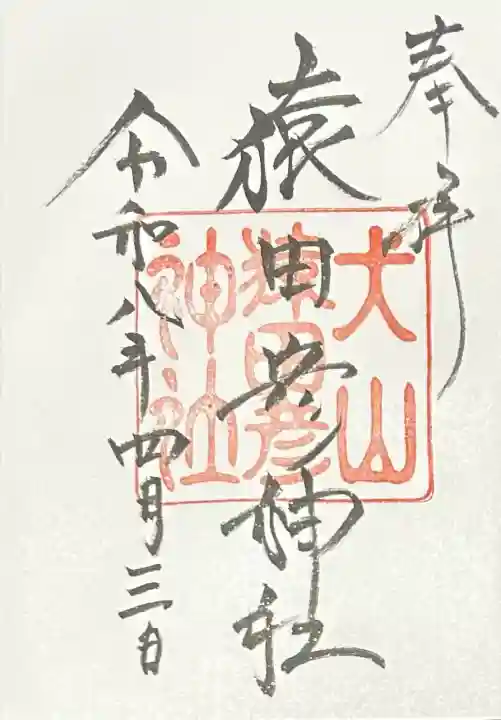 奉拝
猿田彦神社
令和八年四月三日
大山
猿田彦
神社